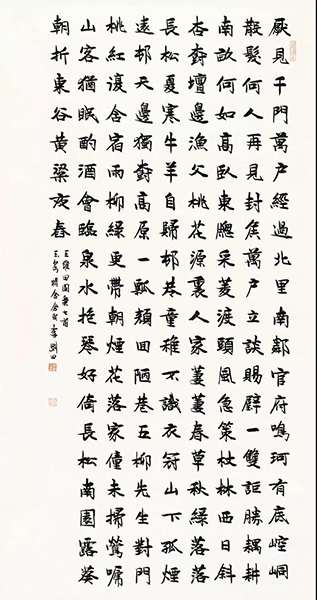 厭見千門萬户經過北里南鄰官府鳴珂有底崆峒
散髮何人再見封侯萬户立談賜璧一雙詎勝耦耕
南畝何如高臥東牕采菱渡頭風急策杖林西日斜
杏樹壇邊漁父桃花源裏人家萋萋春草秋綠落落
長松夏寒牛羊自歸邨巷童稚不識衣冠山下孤煙
遠邨天邊獨樹高原一瓢顏回陋巷五柳先生對門
桃紅復含宿雨柳綠更帶朝煙花落家僮未掃鶯嗁
山客猶眠酌酒會臨泉水抱琴好倚長松南園露葵
朝折東谷黃粱夜舂
王維田園樂七首
李剛田